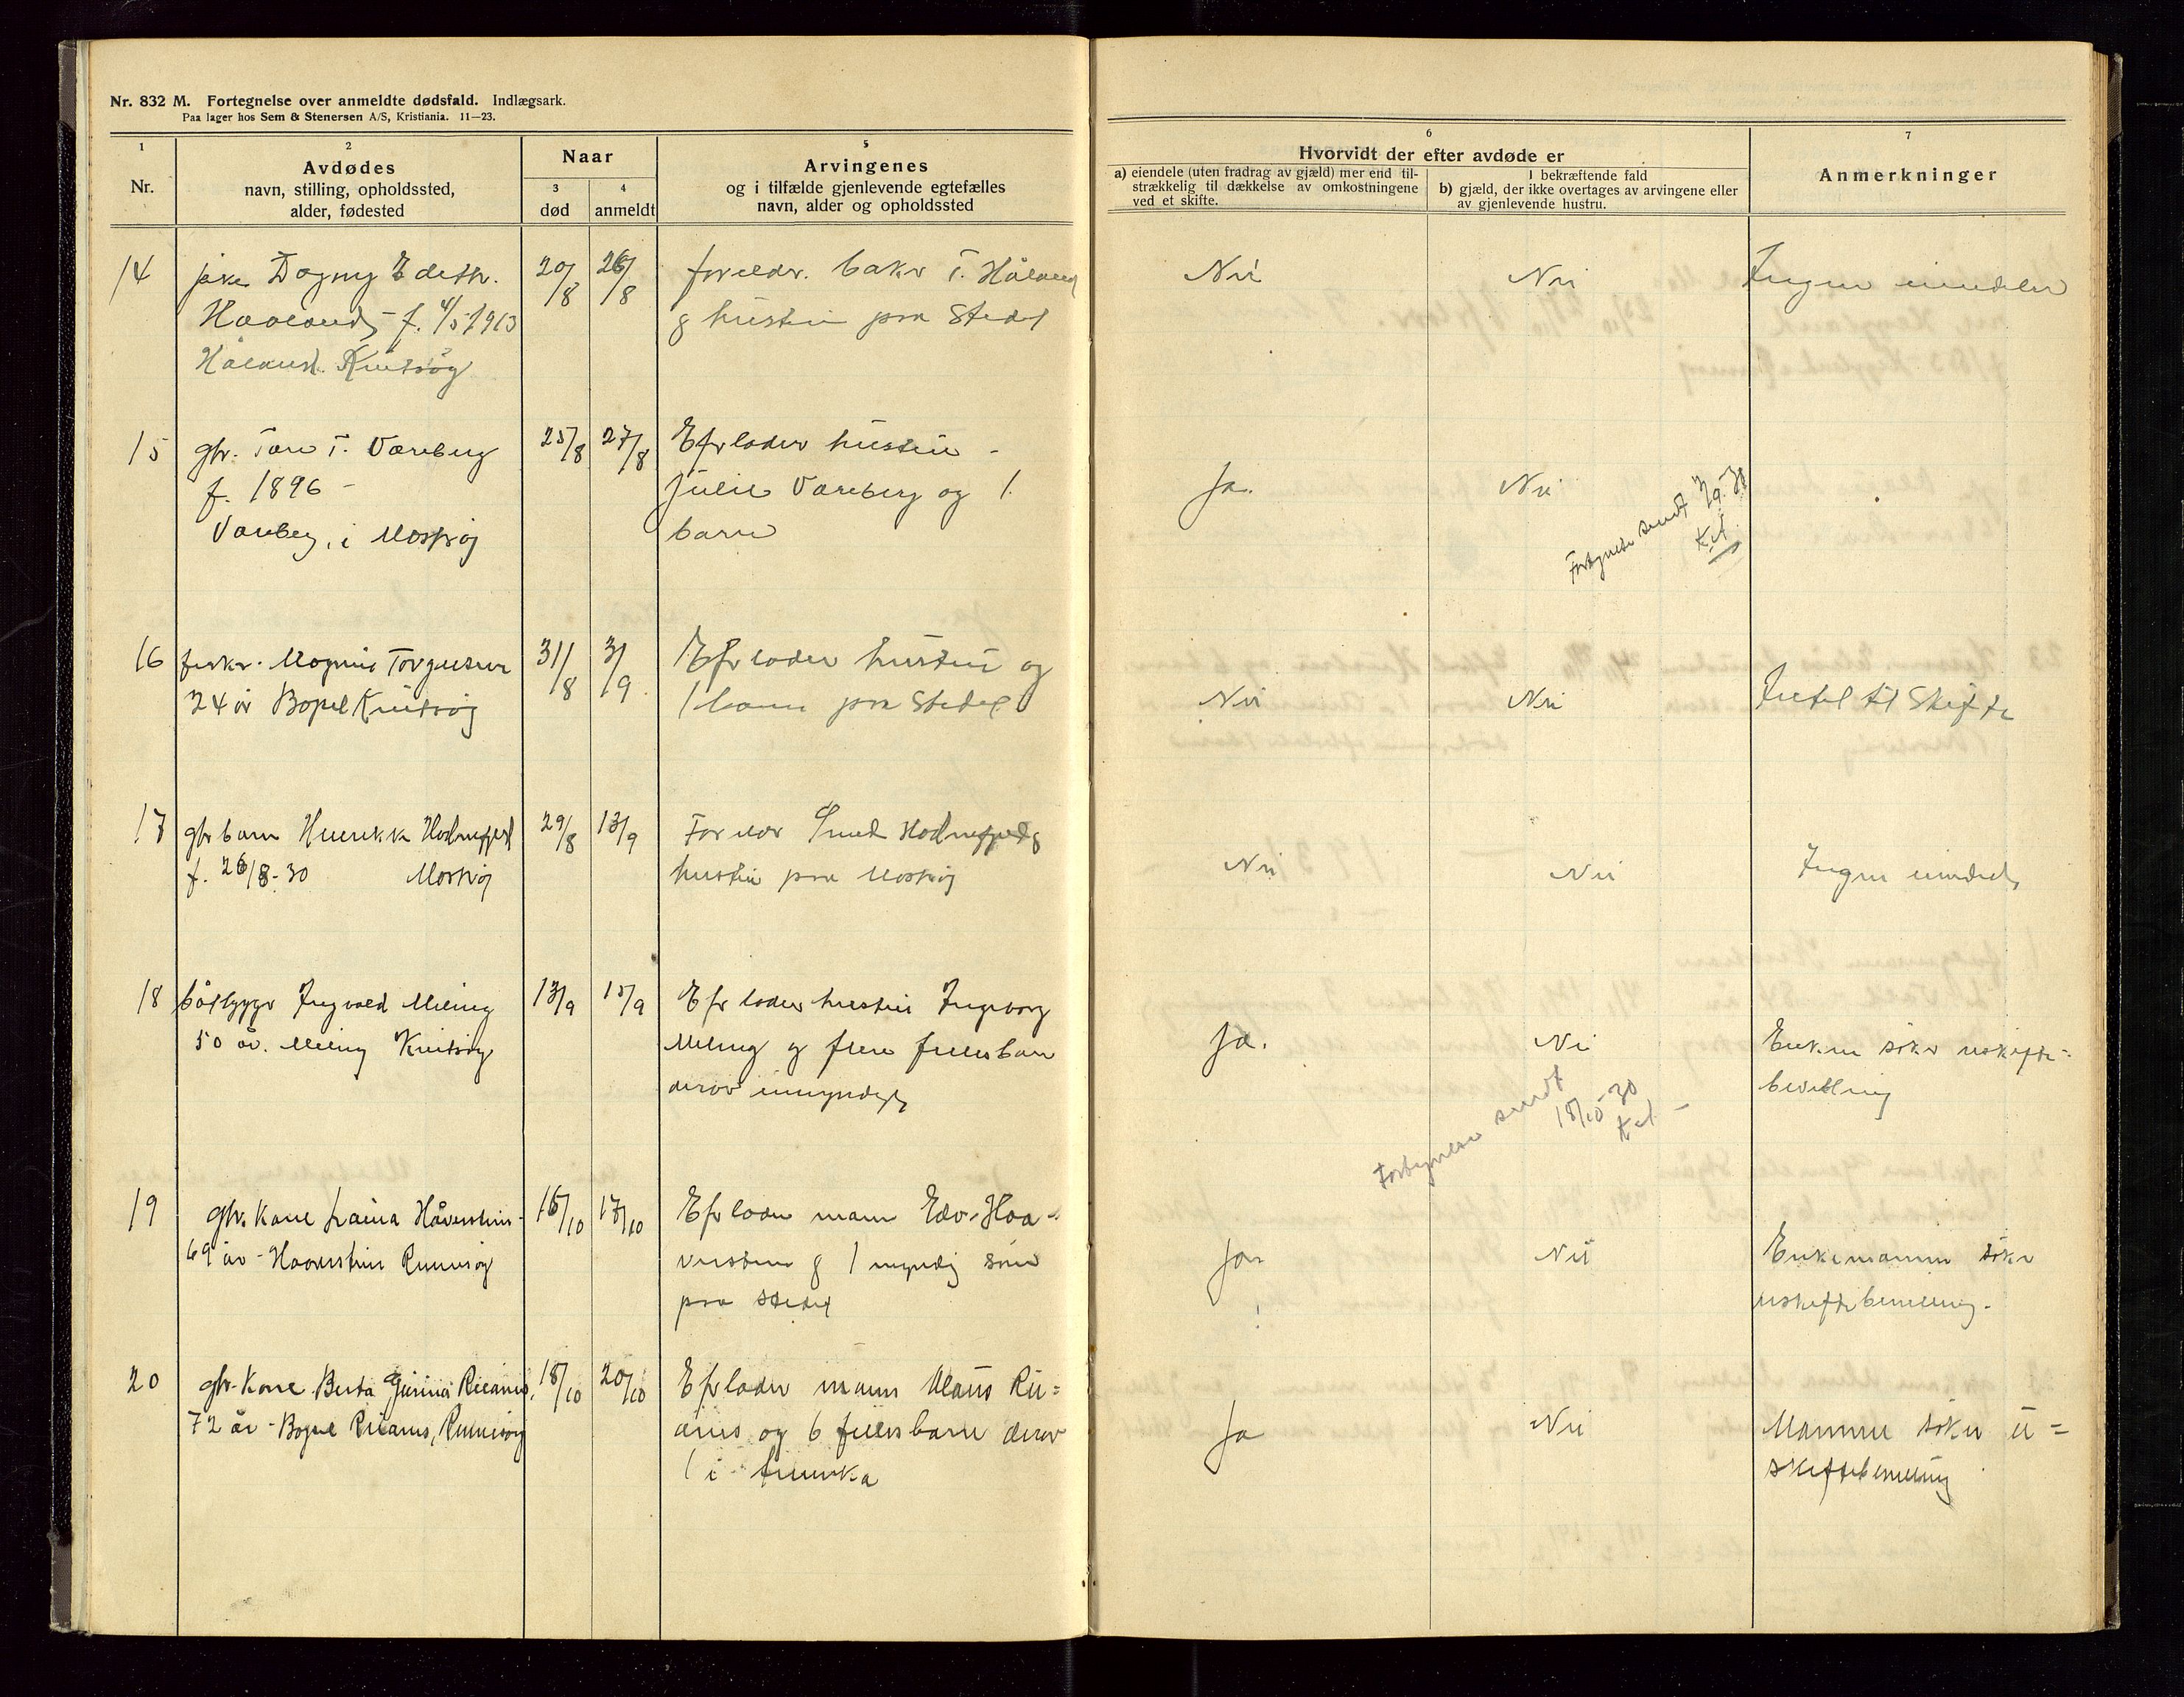 Nr. 832 M. Fortegnelse over anmeldte dødsfald. Indlægsark.
Paa lager hos Sem & Stenersen A/S, Kristiania. 11—23.
1
Nr.
2
Avdødes
navn, stilling, opholdssted,
alder, fødested
Naar
3
død
4
anmeldt
5
Arvingenes
og i tilfælde gjenlevende egtefælles
navn, alder og opholdssted
6
Hvorvidt der efter avdøde er
a) eiendele (uten fradrag av gjæld) mer end til-
strækkelig til dækkelse av omkostningene
ved et skifte.
I bekræftende fald
b) gjæld, der ikke overtages av arvingene eller
av gjenlevende hustru.
7
Anmerkninger
14
pike Dagny Edeth.
Haaland f. 4/5 1913
Håland. Kvitsøy
20/8
26/8
foreldr. baker T. Håland
g hustru paa Stedet
Nei
Nei
Ingen eiendeler
15
gbr. Tore T. Vareberg
f. 1896 -
Vareberg, i Mosterøy
25/8
27/8
Efrlader hustru -
Julie Vareberg og 1
barn
Ja.
Nei
Fortegnelse sendt
16
fisker Magnus Torgersen
34 år Bopel Kvitsøy
31/8
3/9
Efrlader hustru og
1 barn paa Stedet
Nei
Nei
Intet til Skifte
17
gbr barn Henrikk Hodnefjeld
f. 26/8-30 Mosterøy
29/8
13/9
Forelder Hodnefjeld g
hustru paa Mosterøy
Nei
Nei
Ingen eiendele
18
båtbygger Ingvald Meling
50 år. Meling Kvitsøy
13/9
15/9
Efrlader hustru Ingeborg
Meling g flere fellesbarn
derav umyndige
Ja.
Nei
Fortegnelse sendt
18/10-30
Enken søker uskifte-
bevilling
19
gbr. kone Håvestein-
69 år - Haavestein Rennesøy
15/10
17/10
Efrlader mann Edv. Haa-
vestein g 1 myndig sønn
paa stedet
Ja
Nei
Enkemannen søker
uskiftebevilling-
20
gbr. kone Berta Gurina
72 år - Bopel Rennesøy
18/10
20/10
Efrlader mann Klaus
og 6 fellesbarn derav
1 i Amerika
Ja
Nei
Mannen søker u=
skiftebevilling